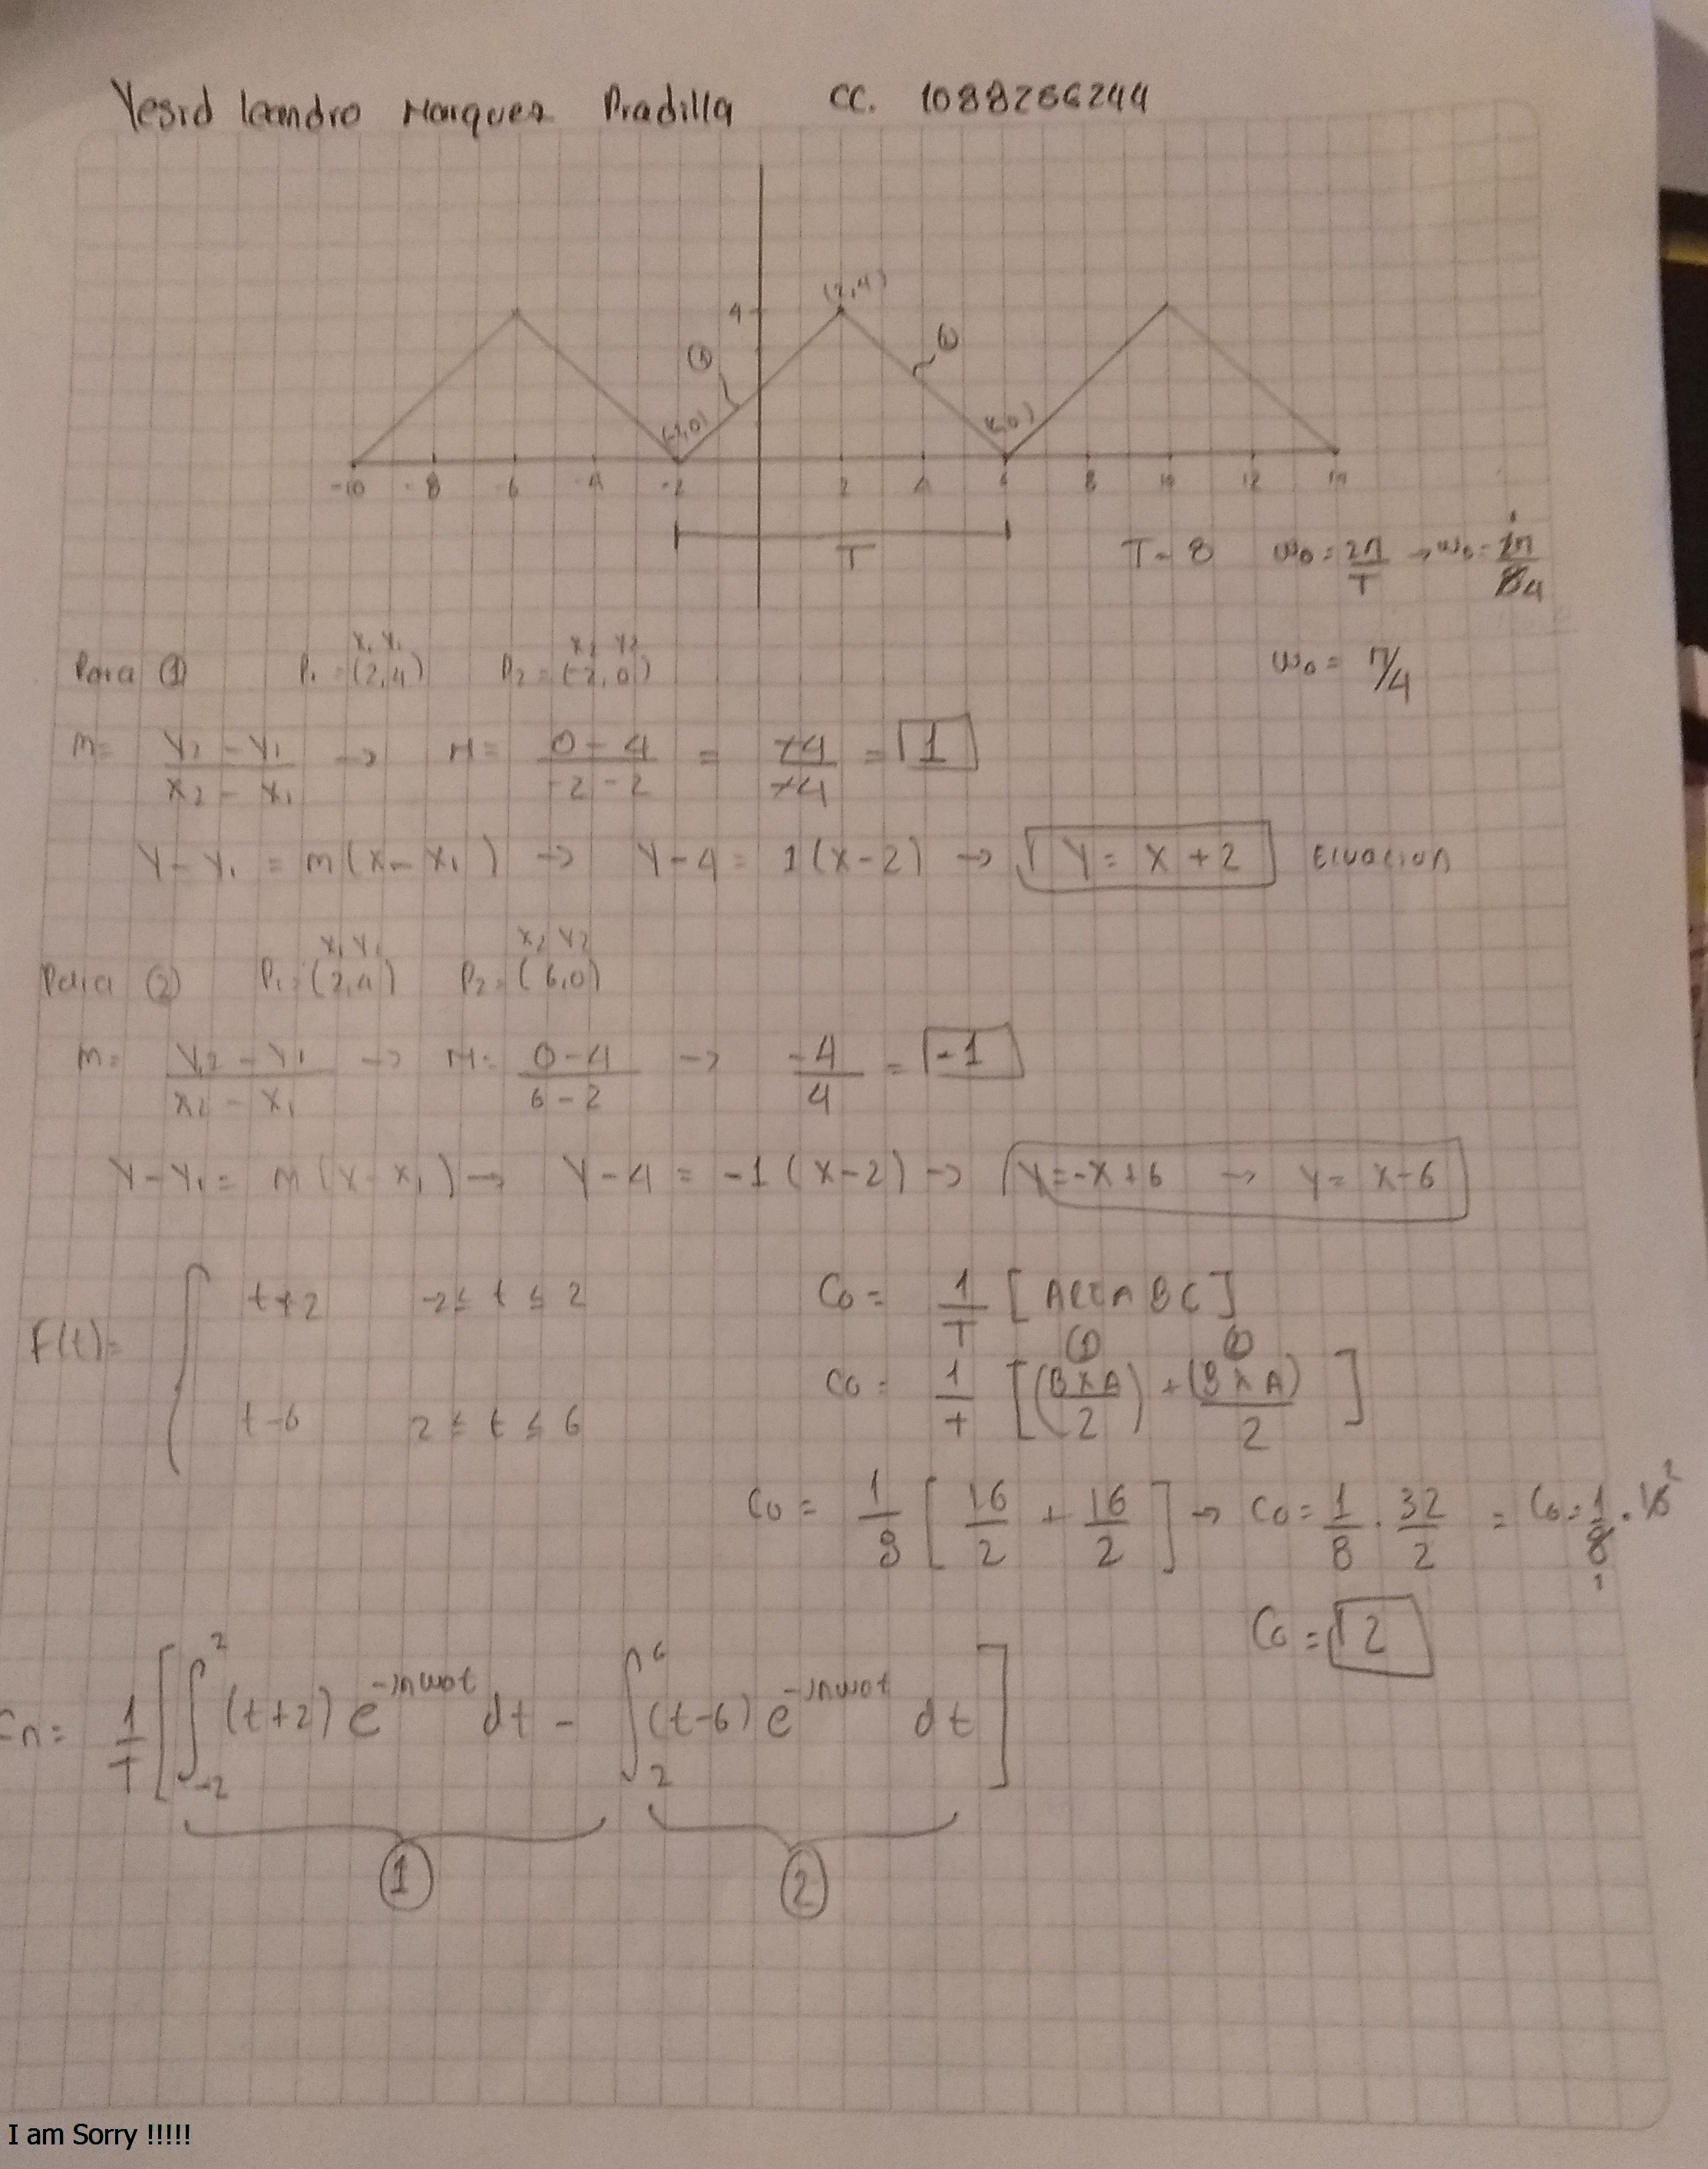 Yesid leandro Marquez Pradilla CC. 1088266244
(2,4)
4
① ②
(-2,0) (6,0)
-10 -8 -6 -4 -2 2 4 6 8 10 12 14
T T = 8 ω0 = 2π/T → ω0 = 2π/8 4
ω0 = π/4
x1 y1 x2 y2
Para ① P1 = (2,4) P2 = (-2,0)
m = y2 - y1 / x2 - x1 → M = 0 - 4 / -2 - 2 = -4 / -4 = 1
y - y1 = m(x - x1) → y - 4 = 1(x - 2) → y = x + 2 Ecuacion
x1 y1 x2 y2
Para ② P1 = (2,4) P2 = (6,0)
m = y2 - y1 / x2 - x1 → M = 0 - 4 / 6 - 2 → -4 / 4 = -1
y - y1 = m(x - x1) → y - 4 = -1(x - 2) → y = -x + 6 → y = x - 6
F(t) = { t+2 -2 ≤ t ≤ 2
t-6 2 ≤ t ≤ 6
C0 = 1/T [ ]
① ②
C0 = 1/T [(BxA / 2) + (BxA) / 2]
C0 = 1/8 [16/2 + 16/2] → C0 = 1/8 . 32/2 = C0 = 1/8 . 16 2
C0 = 2
Cn = 1/T [∫-2^2 (t+2) e^-jnω0t dt - ∫2^6 (t-6) e^-jnω0t dt]
① ②
I am Sorry !!!!!